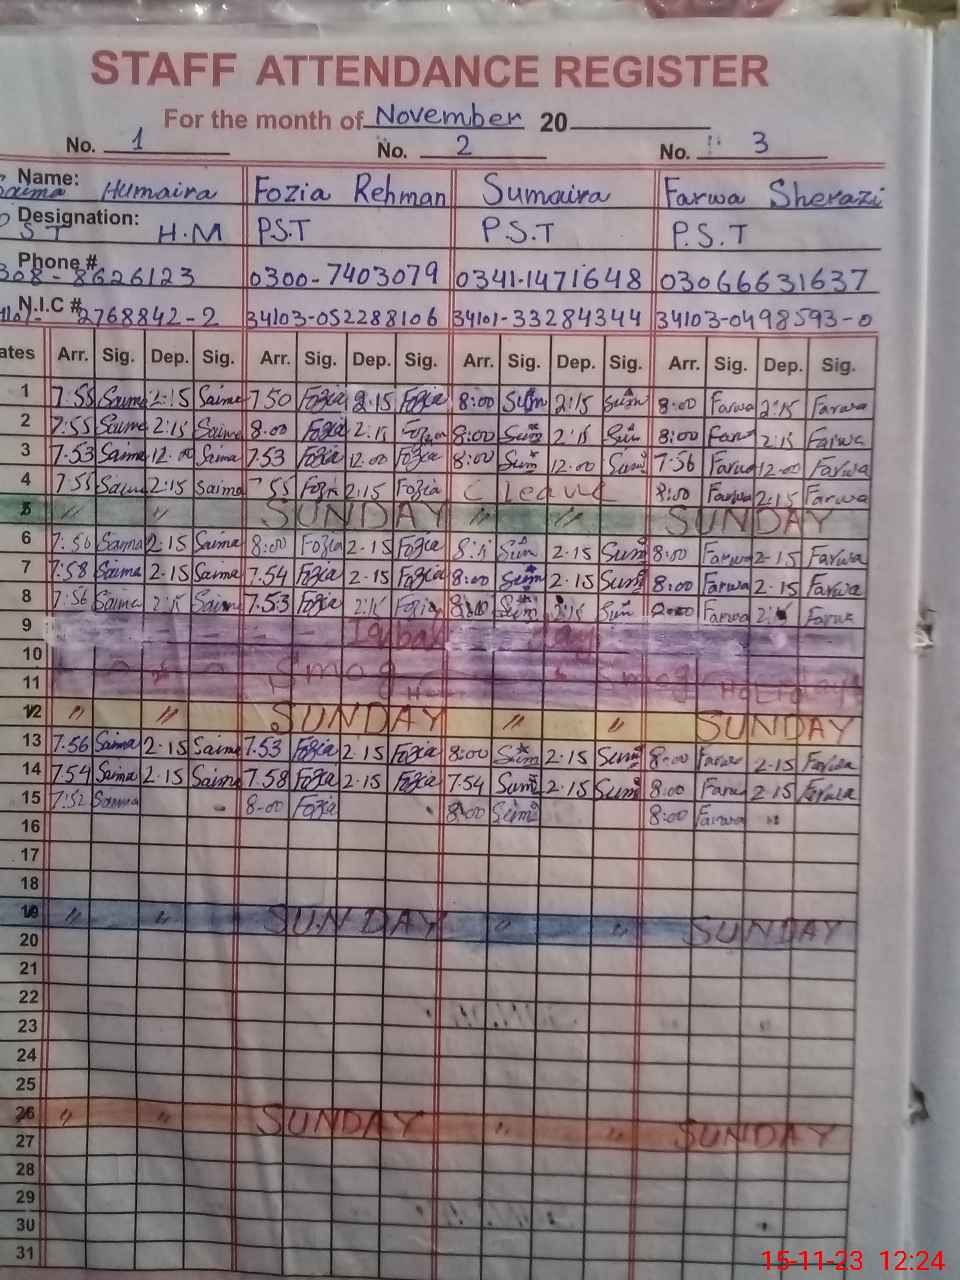 STAFF ATTENDANCE REGISTER
For the month of November 20
No. 1 No. 2 No. 3
Name: Saima Humaira Fozia Rehman Sumaira Farwa Sherazi
Designation: S T H.M P.S.T P.S.T P.S.T
Phone # 308-8626123 0300-7403079 0341-1471648 03066631637
N.I.C # 2768842-2 34103-052288106 34101-33284344 34103-0498593-0
ates Arr. Sig. Dep. Sig. Arr. Sig. Dep. Sig. Arr. Sig. Dep. Sig. Arr. Sig. Dep. Sig.
1 7:55 Saima 2:15 Saima 7 50 Fozia 2.15 Fozia 8:00 Sum 2:15 Sum 8:00 Farwa 2:15 Farwa
2 7:55 Saima 2:15 Saima 8.00 Fozia 2.15 8:00 Sum 2:15 Sum 8:00 Farwa 2:15 Farwa
3 7.53 Saima 12.00 Saima 7.53 Fozia 12.00 Fozia 8:00 Sum 12.00 Sum 7.56 Farwa 12.00 Farwa
4 7.55 Saima 2:15 Saima 7 55 Fozia 2.15 Fozia C Leave 8:00 Farwa 2.15 Farwa
5 〃 〃 SUNDAY 〃 〃 SUNDAY
6 7:56 Saima 2.15 Saima 8:00 Fozia 2.15 Fozia Sum 2.15 Sum 8:00 Farwa 2.15 Farwa
7 7:58 Saima 2.15 Saima 7.54 Fozia 2.15 Fozia 8:00 Sum 2.15 Sum 8:00 Farwa 2.15 Farwa
8 7:56 Saima 2:15 Saima 7.53 Fozia 2:15 Fozia Sum 2:15 Sum Farwa Farwa
9 Iqbal Day
10 Smog Smog
11 Holiday
12 〃 〃 SUNDAY 〃 〃 SUNDAY
13 7.56 Saima 2.15 Saima 7.53 Fozia 2.15 Fozia 8:00 Sum 2.15 Sum 8:00 Farwa 2.15 Farwa
14 7.54 Saima 2.15 Saima 7.58 Fozia 2.15 Fozia 7.54 Sum 2.15 Sum 8:00 Farwa 2.15 Farwa
15 7:52 Saima 8-00 Fozia 8:00 Sum 8:00 Farwa
16
17
18
19 〃 〃 SUNDAY 〃 〃 SUNDAY
20
21
22
23
24
25
26 〃 〃 SUNDAY 〃 〃 SUNDAY
27
28
29
30
31
15-11-23 12:24